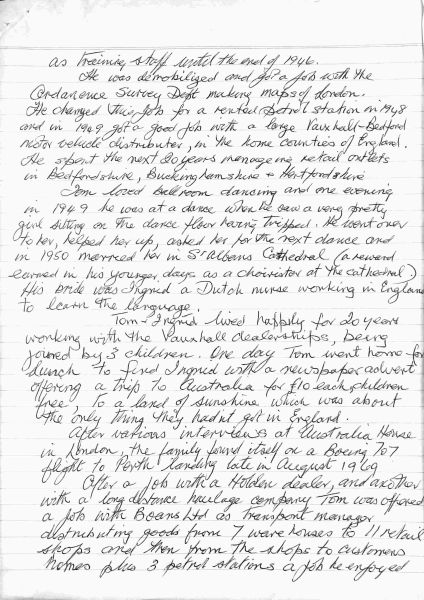 as training staff until the end of 1946.
He was demobilized and got a job with the
Ordanence Survey Dept making maps of London.
He changed this job for a rented Petrol station in 1948
and in 1949 got a good job with a large Vauxhall-Bedford
motor vehicle distributer, in the home counties of England.
He spent the next 20 years manageing retail outlets
in Bedfordshire, Buckinghamshire + Hertfordshire
Tom loved Ballroom dancing and one evening
in 1949 he was at a dance when he saw a very pretty
girl sitting on the dance floor having tripped. He went over
to her, helped her up, asked her for the next dance and
in 1950 married her in St Albans Cathedral (a reward
earned in his younger days as a choirister at the cathedral)
His bride was Ingrid a Dutch nurse working in England
to learn the language.
Tom + Ingrid lived happily for 20 years
working with the Vauxhall dealerships, being
joined by 3 children. One day Tom went home for
lunch to find Ingrid with a newspaper advert
offering a trip to Australia for £10 each, children
free, to a land of sunshine which was about
the only thing they hadnt got in England.
After various interviews at Australia House
in London, the family found itself on a Boeing 707
flight to Perth landing late in August 1969
After a job with a Holden dealer, and another
with a long distance haulage company Tom was offered
a job with Boans Ltd as transport manager
distributing goods from 7 warehouses to 11 retail
shops and then from the shops to customers
homes plus 3 petrol stations a job he enjoyed